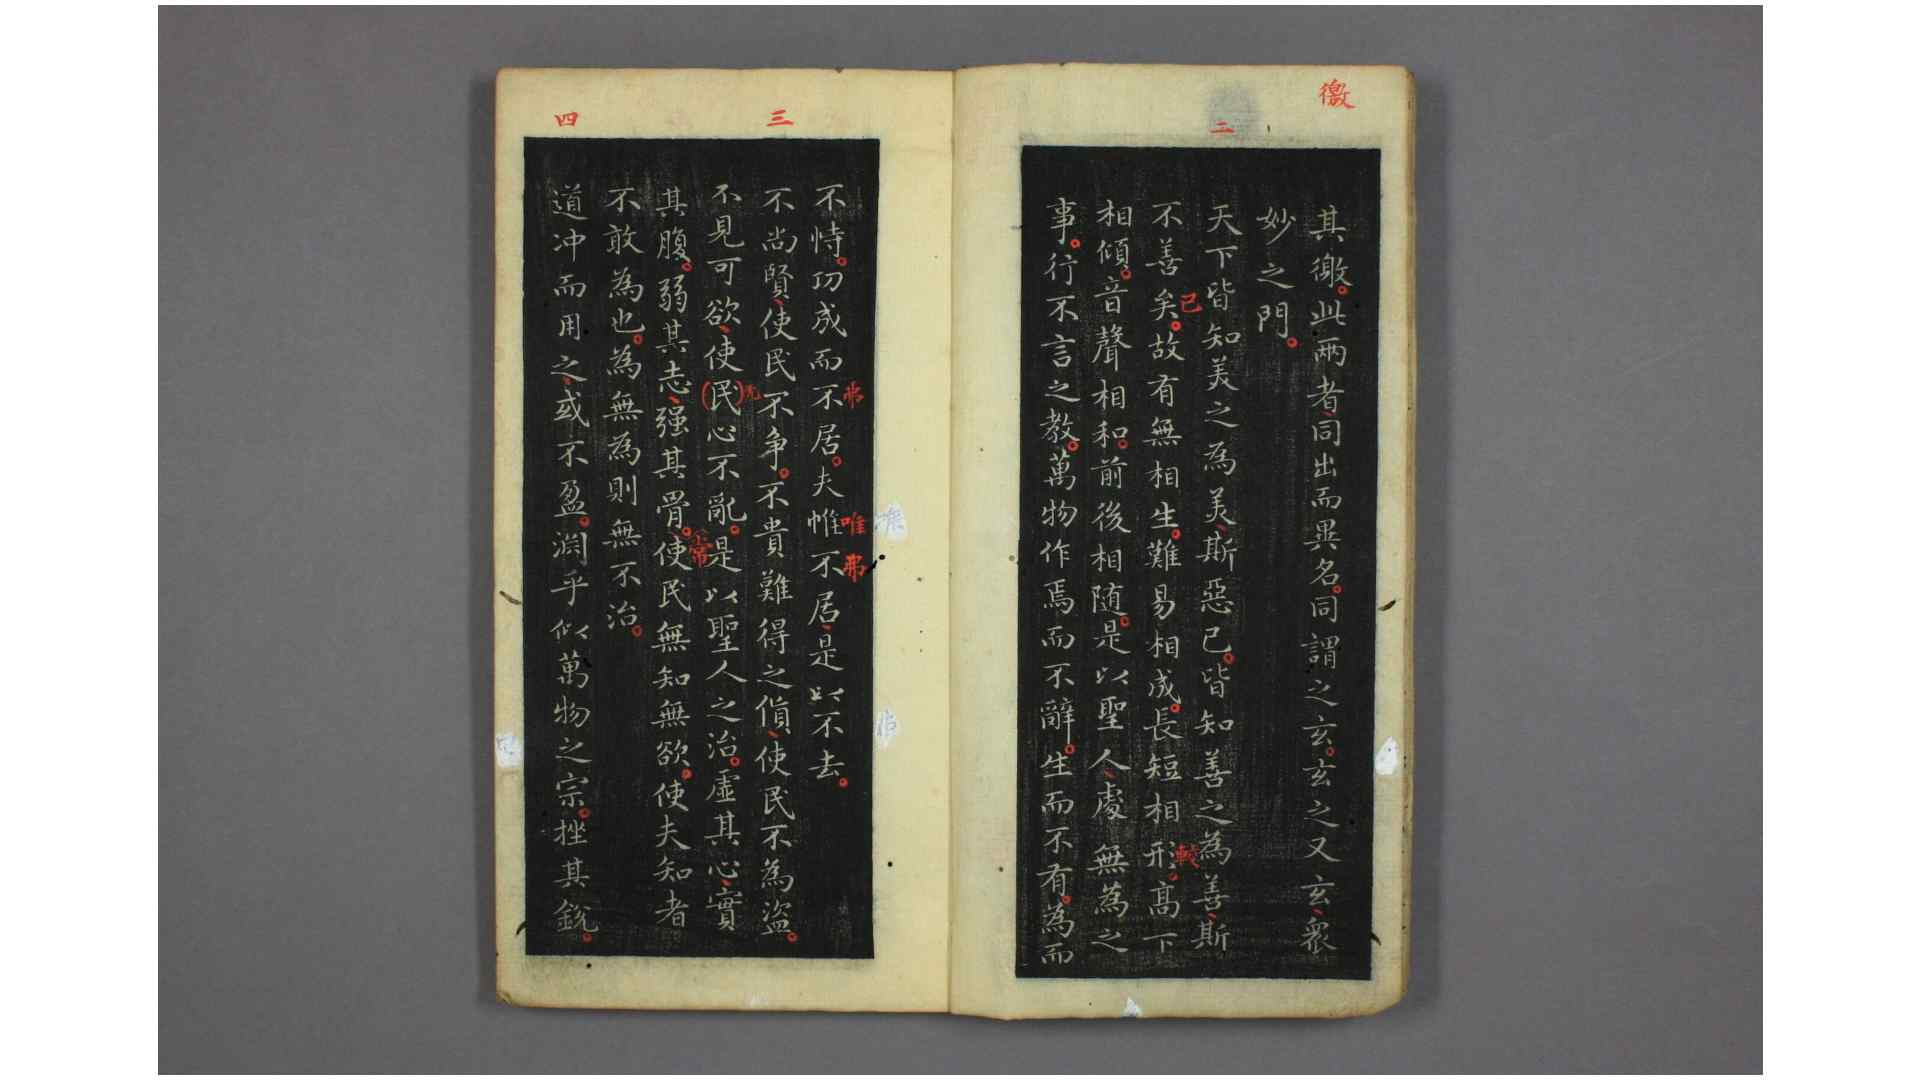 徼
其徼此兩者同出而異名同謂之玄玄之又玄衆
妙之門
二
天下皆知美之為美斯惡已皆知善之為善斯
不善矣故有無相生難易相成長短相形高下
已
較
相傾音聲相和前後相随是以聖人處無為之
事行不言之教萬物作焉而不辭生而不有為而
不恃功成而不居夫惟不居是以不去
弗
唯
弗
三
不尚賢使民不争不貴難得之貨使民不為盗
不見可欲使民心不亂是以聖人之治虛其心實
其腹弱其志强其骨使民無知無欲使夫知者
常
不敢為也為無為則無不治
四
道冲而用之或不盈淵乎似萬物之宗挫其銳